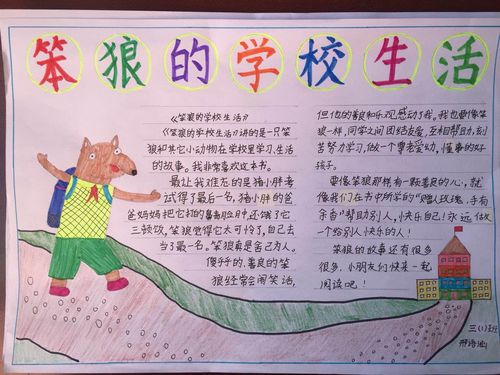 笨狼的学校生活
《笨狼的学校生活》
《笨狼的学校生活》讲的是一只笨
狼和其它小动物在学校里学习、生活
的故事。我非常喜欢这本书。
最让我难忘的是猪小胖考
试得了最后一名，猪小胖的爸
爸妈妈把它打的鼻青脸肿，还饿了它
三顿饭，笨狼觉得它太可怜了，自己去
当了最一名。笨狼真是舍己为人。
傻乎乎的、善良的笨
狼经常会闹笑话，
但他的善良和乐观感动了我，我也要像笨
狼一样，同学之间团结友爱，互相帮助，刻
苦努力学习，做一个尊老爱幼，懂事的好
孩子。
要像笨狼那样有一颗善良的心，就
像我们在书中所学的"赠人玫瑰，手有
余香"帮助别人，快乐自己！永远做
一个给别人快乐的人！
笨狼的故事还有很多
很多，小朋友们快来一起
阅读吧！
三(1)班